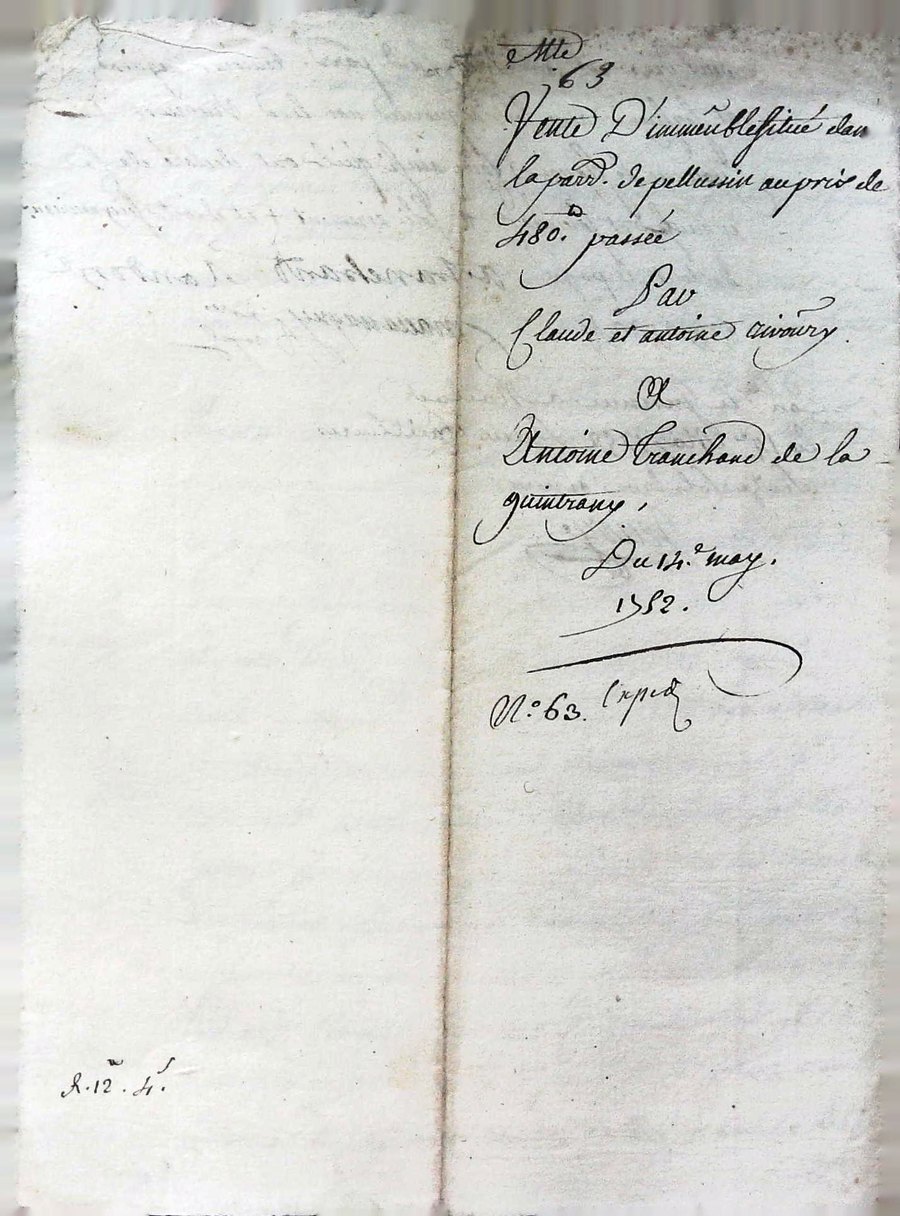 63
Vente D'immeuble situé dan
la parr. de pellussin au prix de
480. passée
Par
Claude et antoine rivoury.
A
Antoine tranchand de la
quintrany,
Du 14.e may.
1752.
N.o 63. Exped
R. 12. 4.s